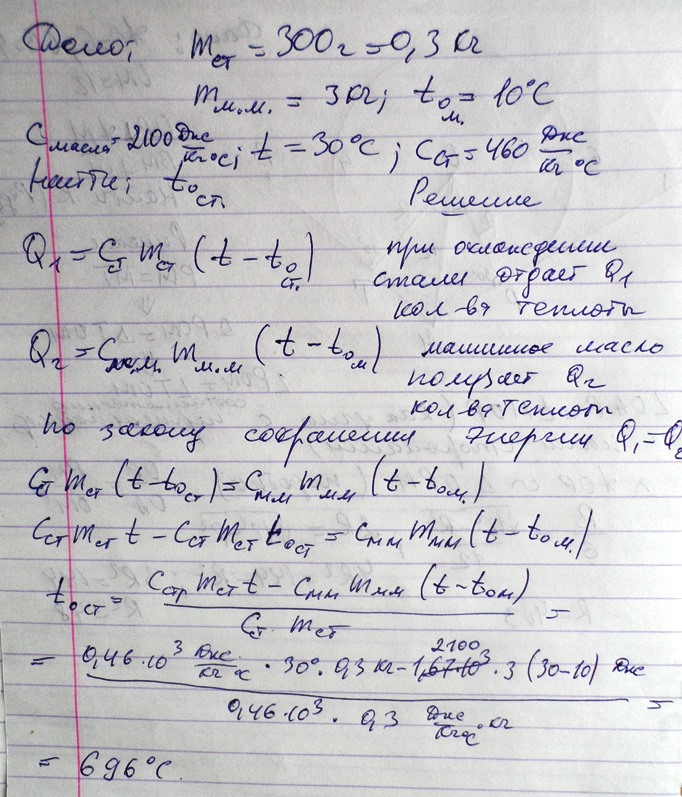 Дело; m ст = 300 г = 0,3 кг
m м.м. = 3 кг; t о м. = 10°C
C масла = 2100 Дж/кг°C; t = 30°C; C ст = 460 Дж/кг°C
Найти; t о ст.
Решение
Q₁ = C ст m ст (t - t о ст.) при охлождении
стали отдаёт Q₁
кол-ва теплоты
Q₂ = C м.м. m м.м (t - t о м) машинное масло
получает Q₂
кол-ва теплоты
по закону сохранении энергии Q₁ = Q₂
C ст m ст (t - t о ст) = C мм m мм (t - t о м.)
C ст m ст t - C ст m ст t о ст = C мм m мм (t - t о м.)
t о ст = (C ст m ст t - C мм m мм (t - t о м)) / (C ст. m ст) =
= (0,46·10³ Дж/кг°C · 30° · 0,3 кг - 2100 · 3 (30-10) Дж) / (0,46·10³ · 0,3 Дж/кг°C · кг) =
= 696°C.